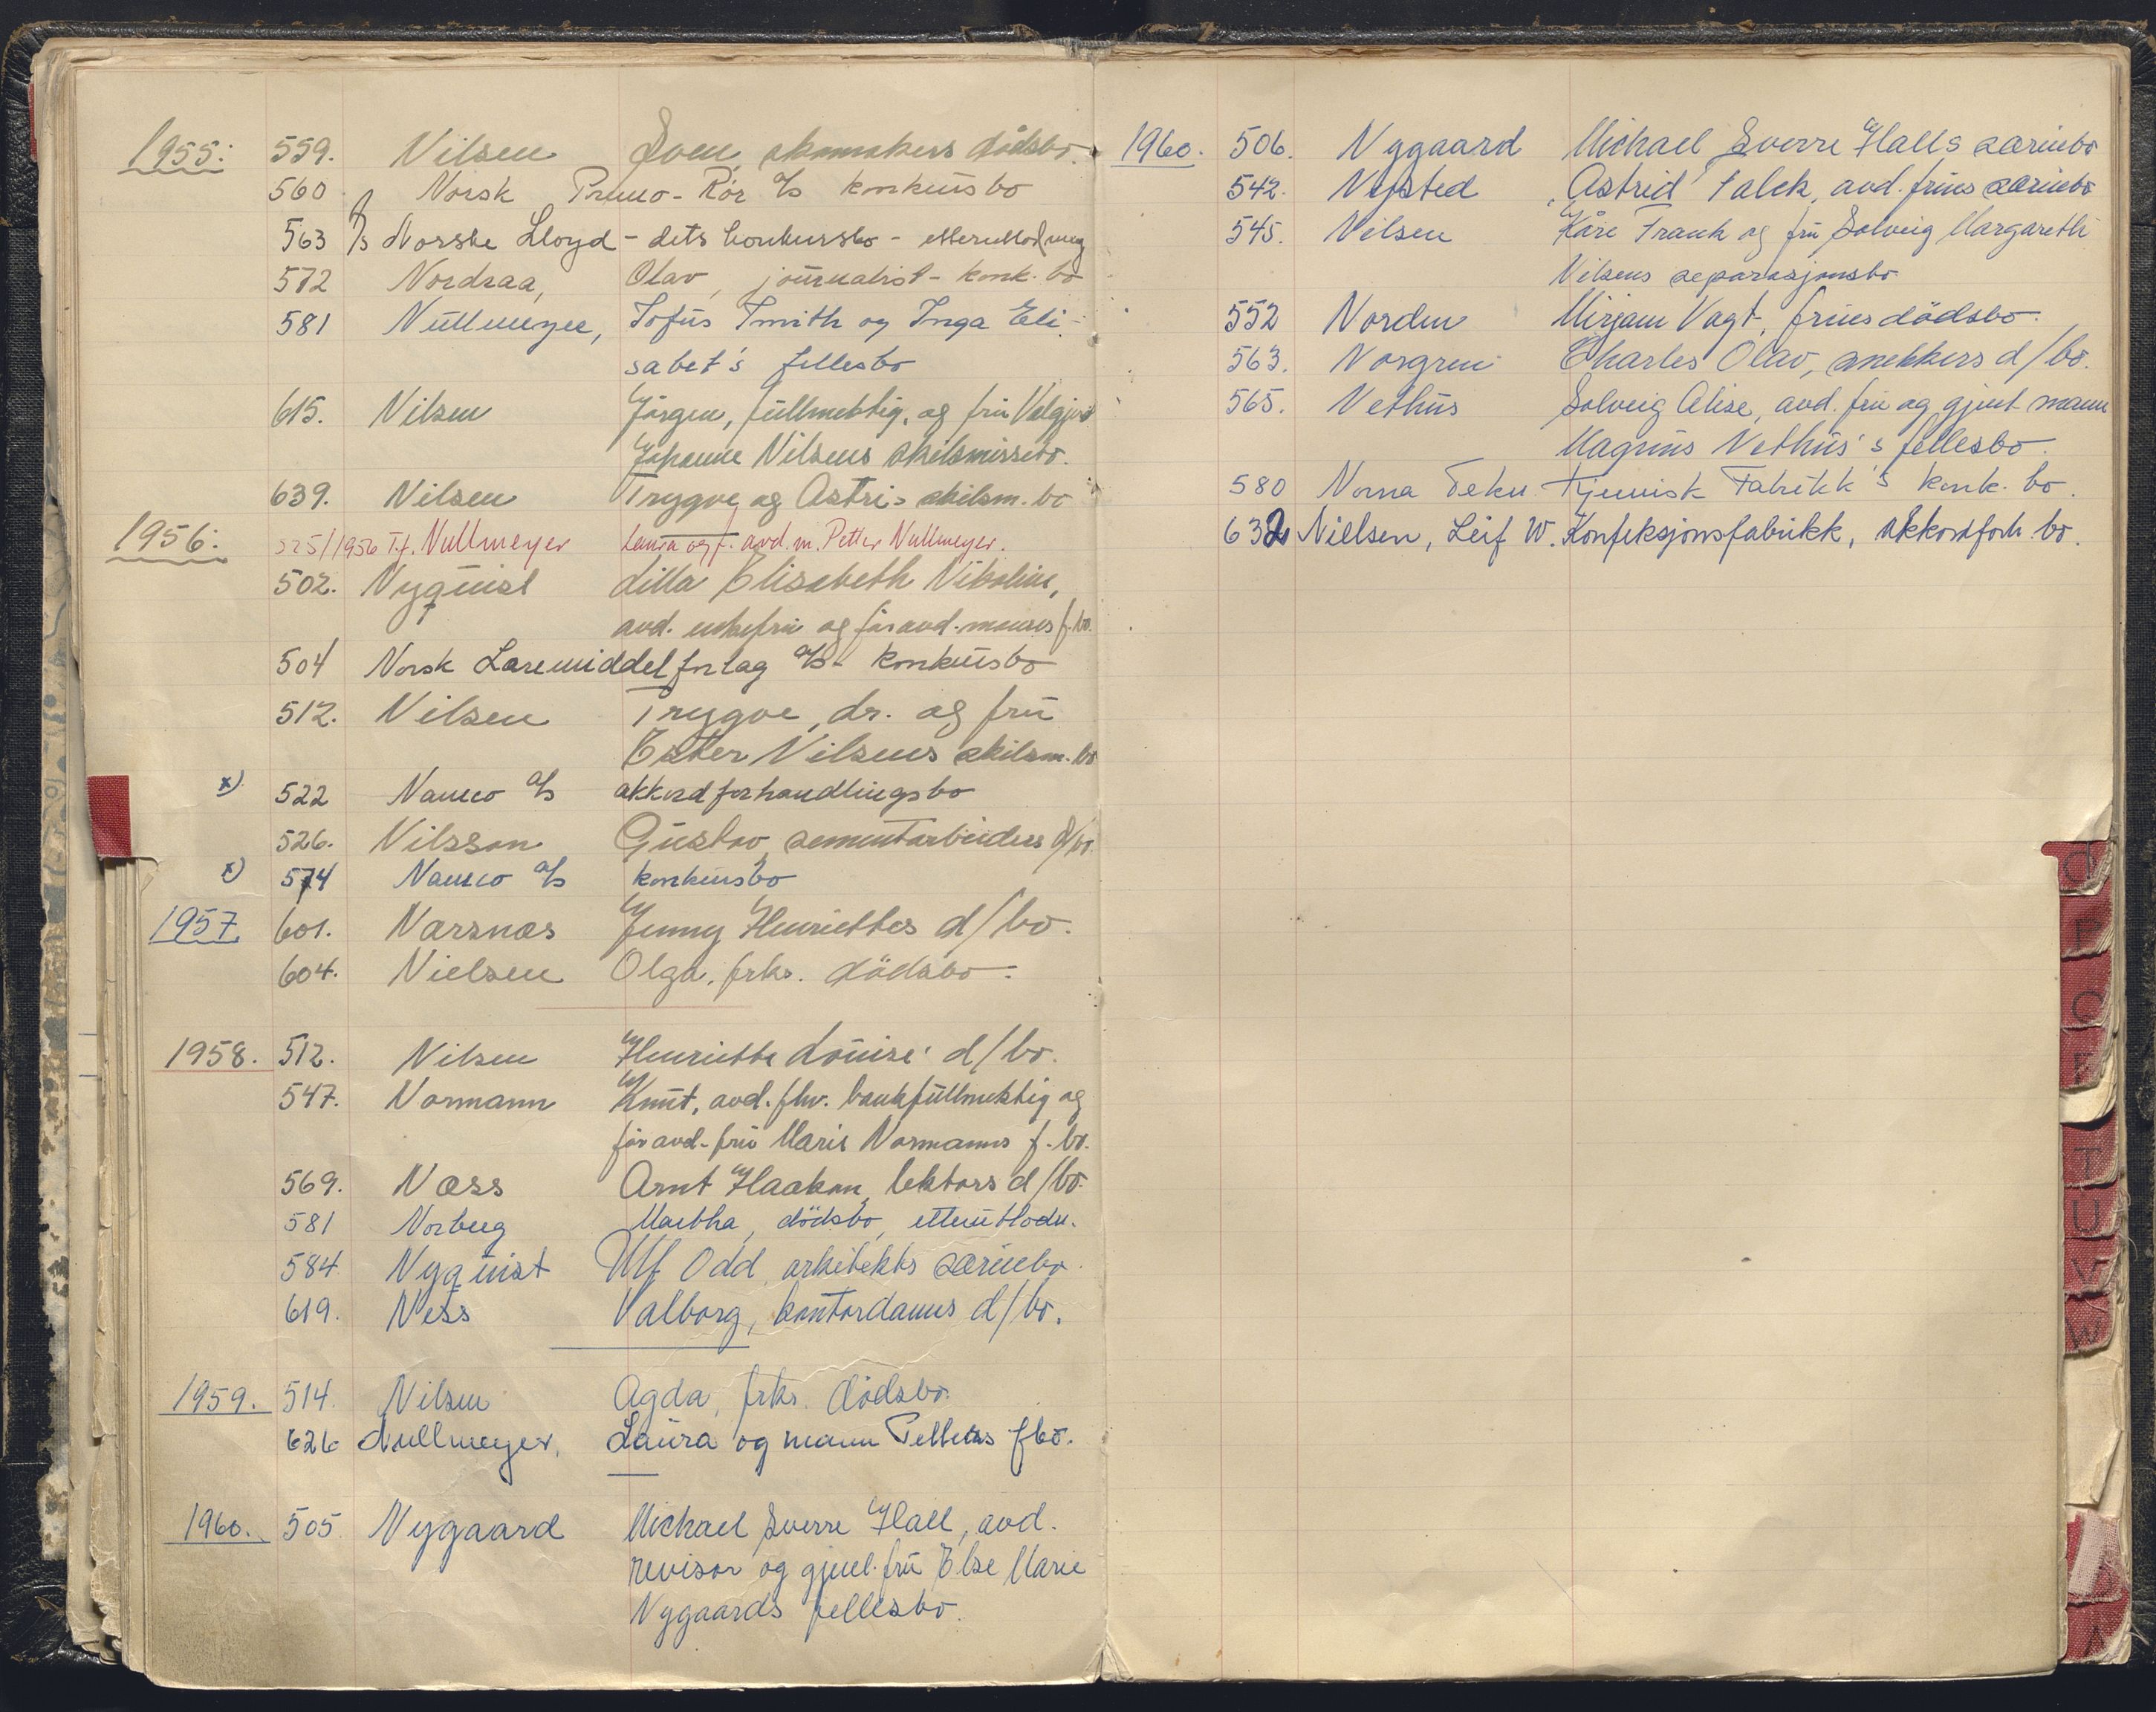 1955: 559. Nilsen Sven skomakers dødsbo.
560 Norsk Pumo-Rör a/s konkursbo
563 A/s Norske Lloyd - dets konkursbo - etterutlodning
572 Nordraa, Olav, journalist - konk. bo
581 Nullmeyer, Sofus Smith og Inga Eli-
sabet's fellesbo
615. Nilsen Jörgen, fullmektig, og fru Valgjerd
Johanne Nilsens skilsmissebo.
639. Nilsen Trygve og Astri's skilsm. bo
1956: 525/1956 T.f. Nullmeyer Laura og f. avd. m. Petter Nullmeyer.
502. Nyquist Lilla Elisabeth Nikoline,
avd. enkefru og för avd. manns f. bo.
504 Norsk Læremiddelforlag a/s - konkursbo
512. Nilsen Trygve, dr. og fru
Ester Nilsens skilsm. bo
x) 522 Namco a/s akkordforhandlingsbo
526. Nilsson Gustav, sementarbeiders d/bo.
x) 574 Namco a/s konkursbo
1957 601. Narsnes Jenny Henriettes d/bo.
604. Nielsen Olga, frks. dödsbo.
1958. 512. Nilsen Henriette Louise' d/bo.
547. Normann Knut, avd. fhv. bankfullmektig og
för avd. fru Maris Normanns f. bo.
569. Næss Arnt Haakon, lektors d/bo.
581 Norberg Martha, dödsbo, etterutlodn.
584 Nyquist Ulf Odd, arkitekts særiebo.
619. Ness Valborg, kontordames d/bo.
1959. 514. Nilsen Agda, frks. dödsbo.
626 Nullmeyer, Laura og mann Petters fbo.
1960. 505 Nygaard Michael Sverre Hall, avd.
revisor og gjenl. fru Else Marie
Nygaards fellesbo.
1960. 506. Nygaard Michael Sverre Halls særiebo
542. Nysted Astrid Falck, avd. frues særiebo
545. Nilsen Kåre Frank og fru Solveig Margareth
Nilsens separasjonsbo
552 Norden Mirjam Vagt, frues dödsbo.
563. Norgren Charles Olav, snekkers d/bo.
565. Nethus Solveig Alise, avd. fru og gjenl. mann
Magnus Nethus's fellesbo.
580 Norna Tekn. Kjemisk Fabrikk's konk. bo.
632 Nielsen, Leif W. Konfeksjonsfabrikk, akkordforh. bo.
O
P
T
U
V
W